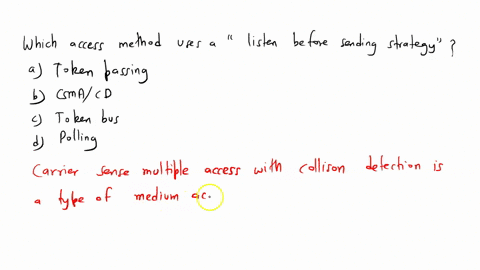 Which access method uses a "listen before sending strategy"?
a) Token passing
b) CSMA/CD
c) Token bus
d) Polling
Carrier sense multiple access with collison detection is
a type of medium ac.